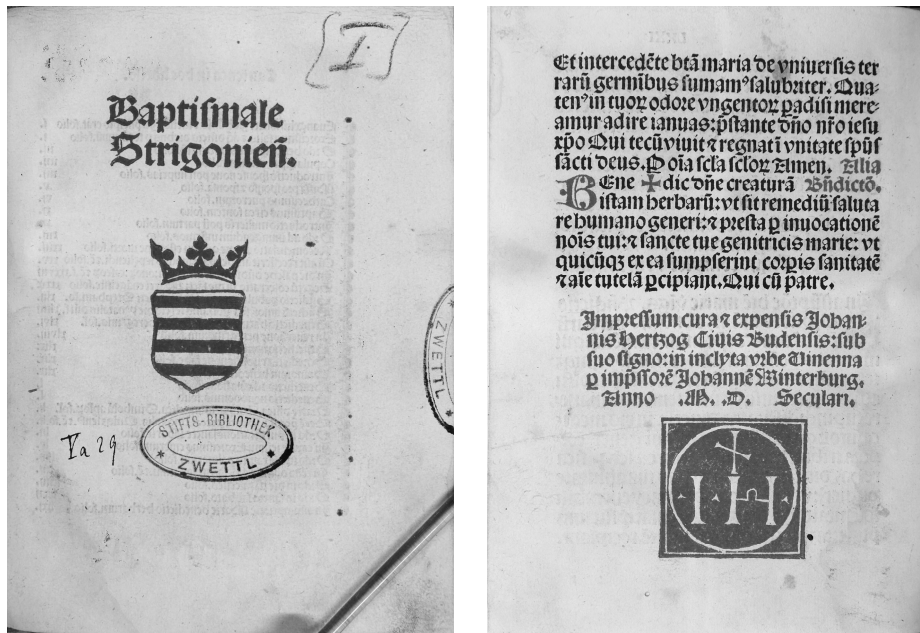 [I]
Baptismale
Strigonieñ.
STIFTS-BIBLIOTHEK
ZWETTL
Va 29
ZWETTL
Et intercedēte btā maria de vniuersis ter
rarū germībus sumamꝰ salubriter. Qua-
tenꝰ in tuoꝝ odore vngentoꝝ ꝑadisi mere-
amur adire ianuas: p̄stante dn̄o nr̄o iesu
xp̄o Qui tecū viuit ⁊ regnat ī vnitate sp̄ūs
sācti deus. Ꝑ oīa scl̄a scl̄oꝝ Amen. Alia
BEne ✠ dic dn̄e creaturā Bn̄dictō.
istam herbarū: vt sit remediū saluta
re humano generi: ⁊ presta ꝑ inuocationē
noīs tui: ⁊ sancte tue genitricis marie: vt
quicūqꝫ ex ea sumpserint corꝑis sanitatē
⁊ aīe tutelā ꝑcipiant. Qui cū patre.
Impressum cura ⁊ expensis Johan-
nis Hertzog Ciuis Budensis: sub
suo signo: in inclyta vrbe Uinenna
ꝑ imp̄ssorē Johannē Winterburg.
Anno .M. .D. Seculari.
I H